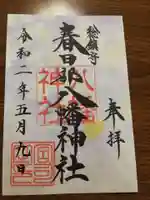 奉拝
春日部八幡神社
令和二年五月九日